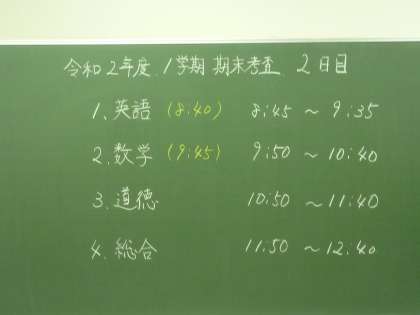 令和2年度.1学期 期末考査 2日目
1、英語 (8:40) 8:45 ～ 9:35
2.数学 (9:45) 9:50 ～ 10:40
3.道徳 10:50 ～11:40
4.総合 11:50 ～12:40